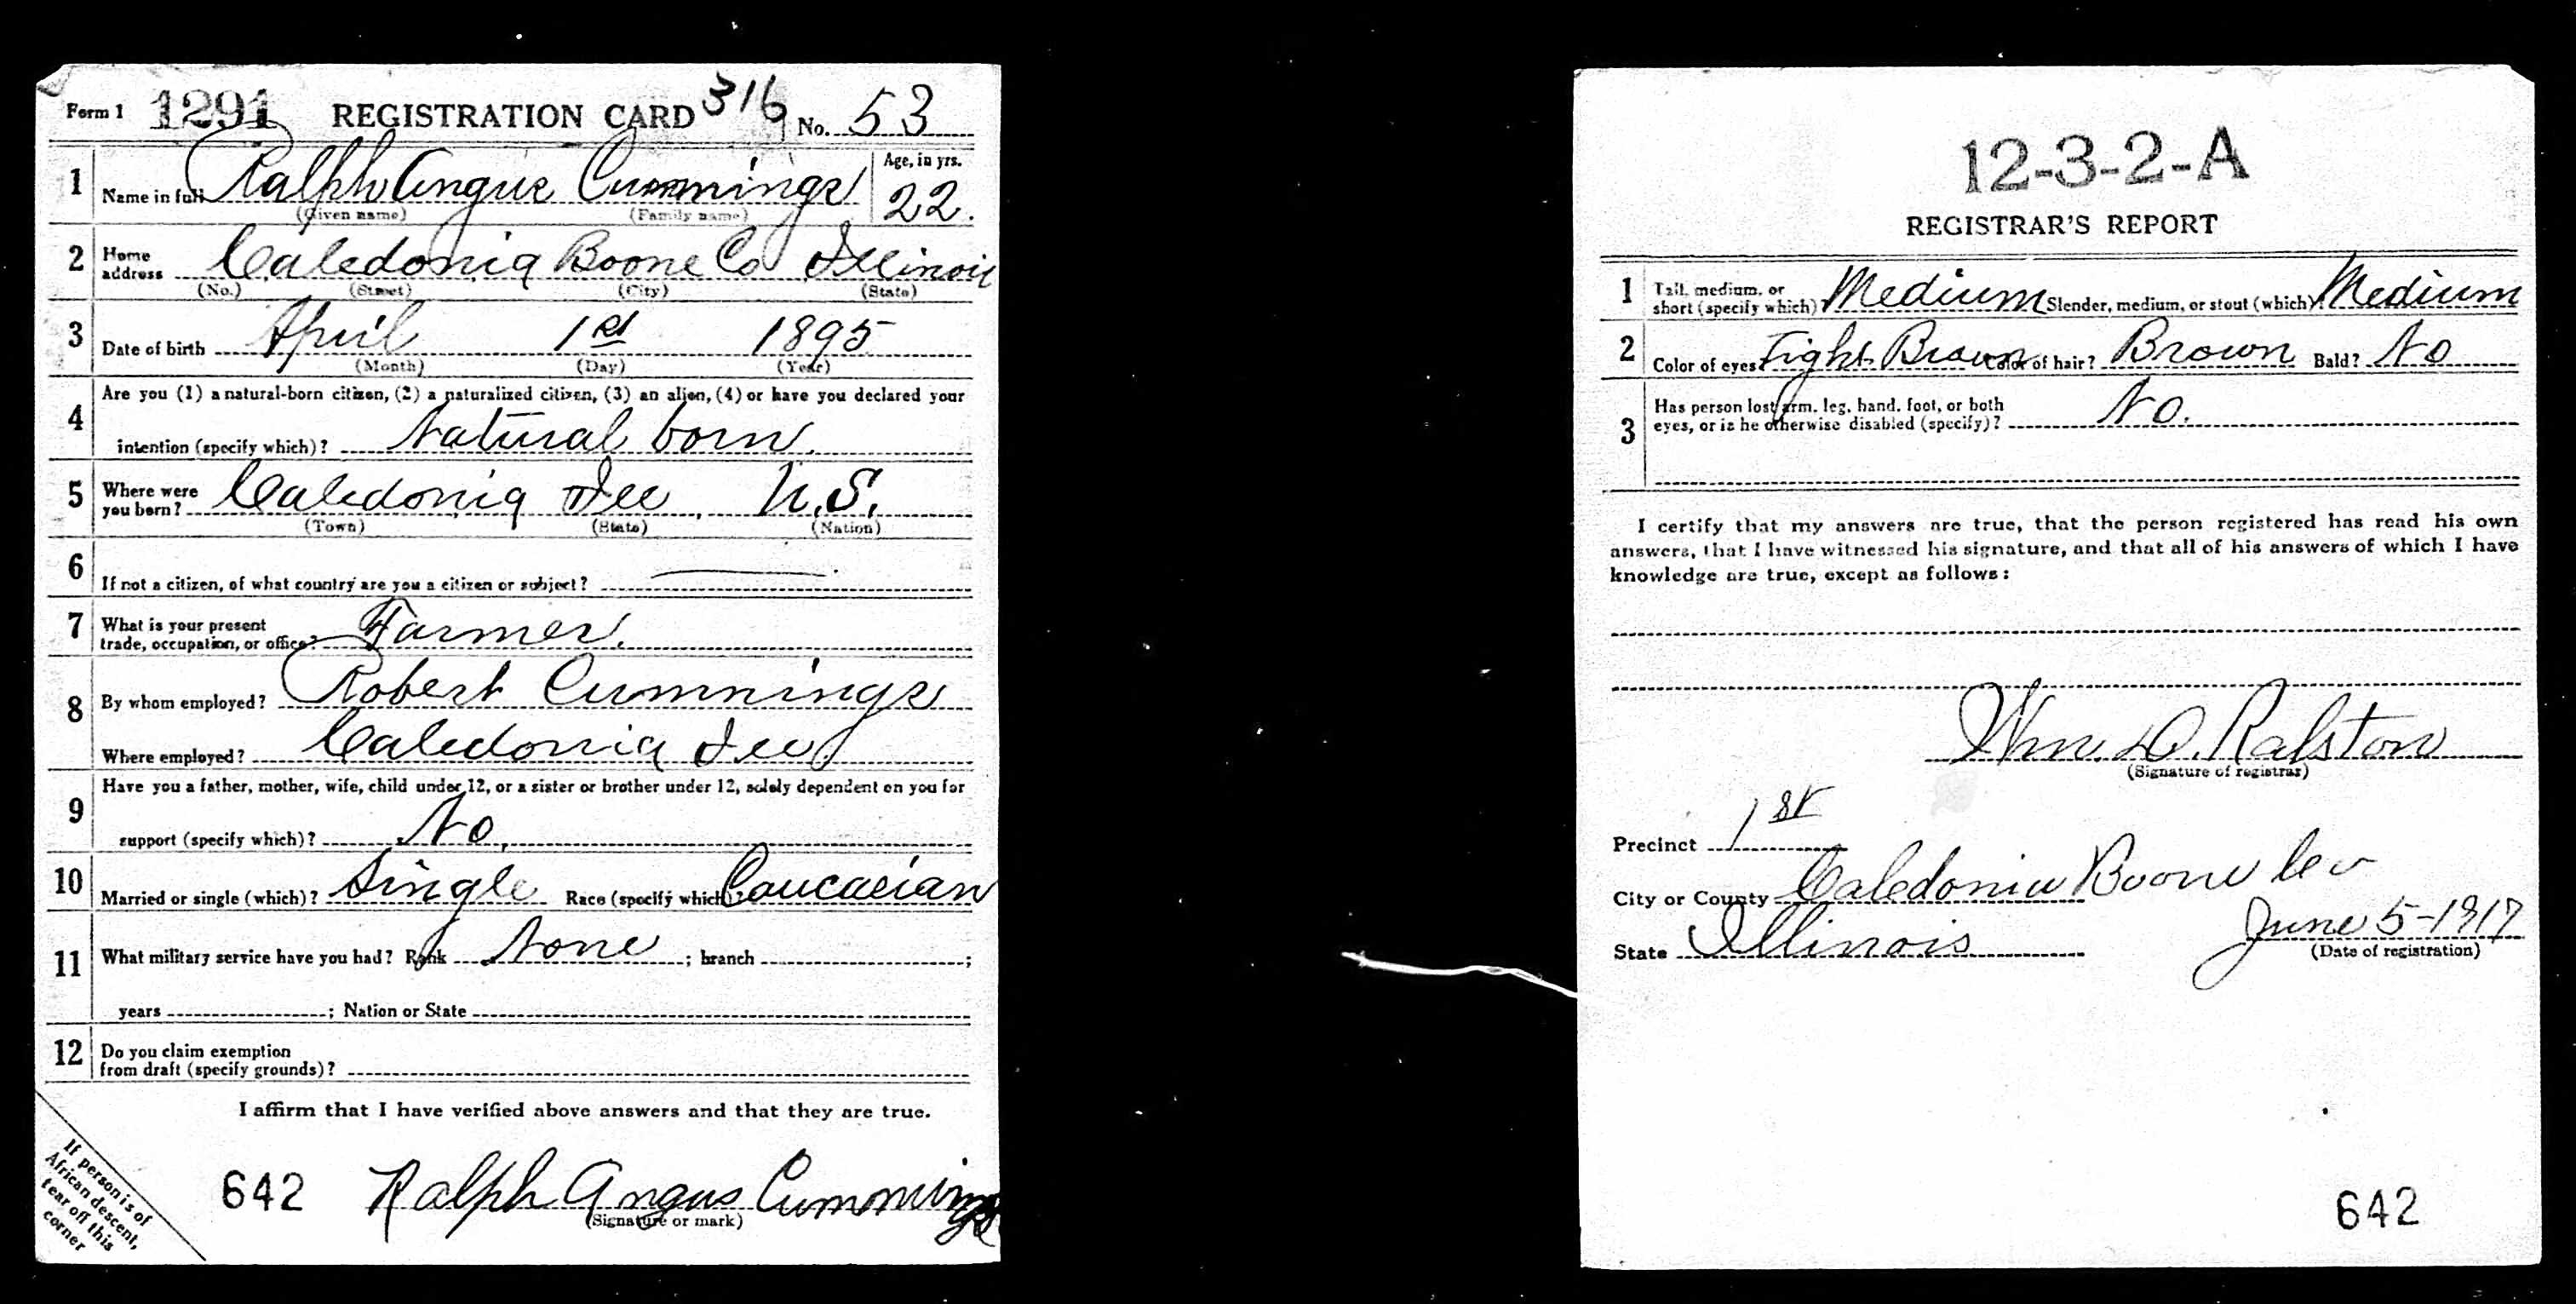 Form 1 1291 REGISTRATION CARD 316 No. 53
1 Name in full Ralph Angus Cummings Age, in yrs. 22.
(Given name) (Family name)
2 Home address Caledonia Boone Co Illinois
(No.) (Street) (City) (State)
3 Date of birth April 1st 1895
(Month) (Day) (Year)
4 Are you (1) a natural-born citizen, (2) a naturalized citizen, (3) an alien, (4) or have you declared your
intention (specify which)? Natural born.
5 Where were you born? Caledonia Ill, U.S.
(Town) (State) (Nation)
6 If not a citizen, of what country are you a citizen or subject?
7 What is your present trade, occupation, or office? Farmer.
8 By whom employed? Robert Cummings
Where employed? Caledonia Ill
9 Have you a father, mother, wife, child under 12, or a sister or brother under 12, solely dependent on you for
support (specify which)? No,
10 Married or single (which)? Single Race (specify which)? Caucasian
11 What military service have you had? Rank None ; branch ;
years ; Nation or State
12 Do you claim exemption
from draft (specify grounds)?
I affirm that I have verified above answers and that they are true.
642 Ralph Angus Cummings
(Signature or mark)
If person is of
African descent,
tear off this
corner
12-3-2-A
REGISTRAR'S REPORT
1 Tall, medium, or short (specify which)? Medium Slender, medium, or stout (which)? Medium
2 Color of eyes? Light Brown Color of hair? Brown Bald? No
3 Has person lost arm, leg, hand, foot, or both
eyes, or is he otherwise disabled (specify)? No.
I certify that my answers are true, that the person registered has read his own
answers, that I have witnessed his signature, and that all of his answers of which I have
knowledge are true, except as follows:
Wm. D. Ralston
(Signature of registrar)
Precinct 1st
City or County Caledonia Boone Co
State Illinois June 5-1917
(Date of registration)
642